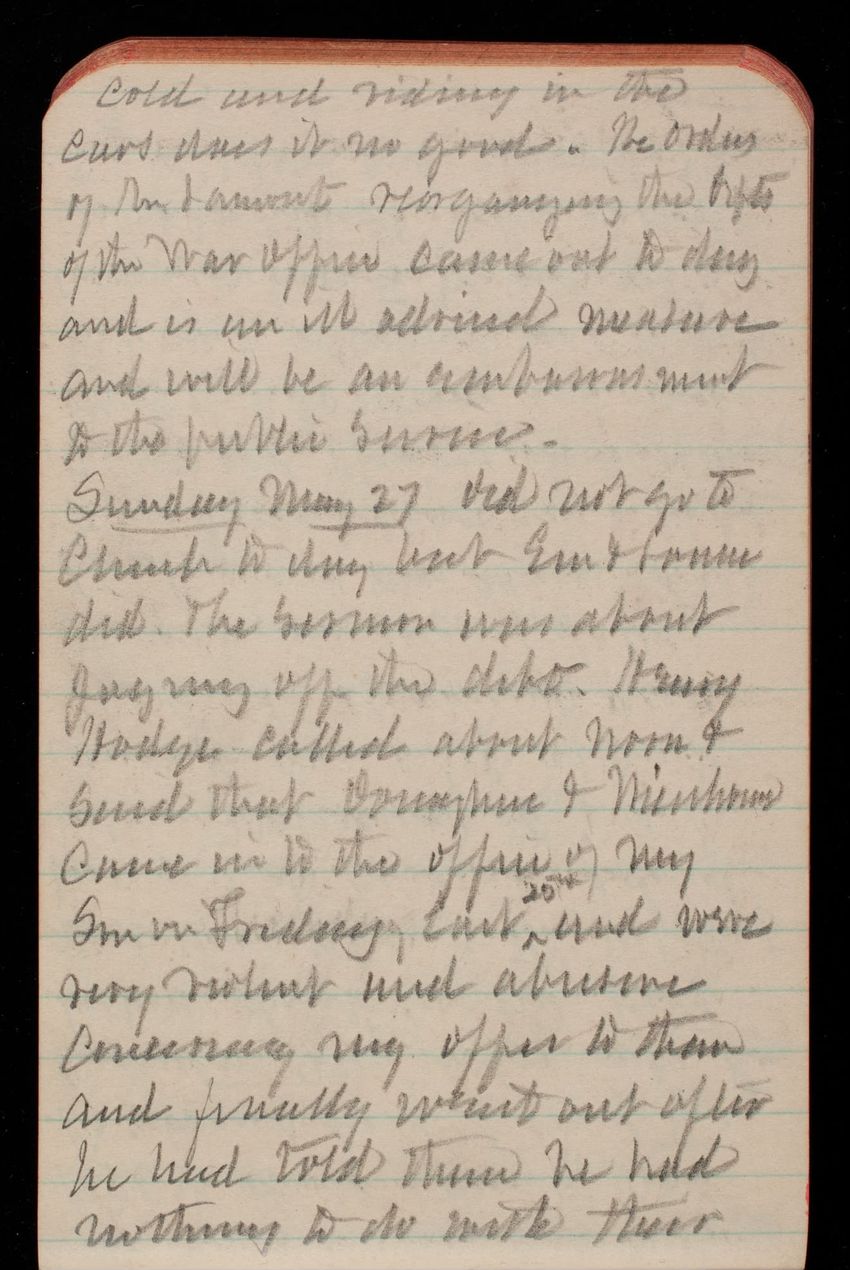 cold and riding in the
cars does it no good. The orders
of Mr Lamont reorganizing the Depts
of the War Office came out to day
and is an ill advised measure
and will be an embarrasment
to the public service.
Sunday May 27 did not go to
Church to day but Em &
did. The Sermon was about
paying off the debt. Henry
Hodge called about Noon &
said that Donaphue &
came in to the office of my
Son on Friday, last 25th and were
very violent and abusive
concerning my offer to them
and finally went out after
he had told them he had
nothing to do with their